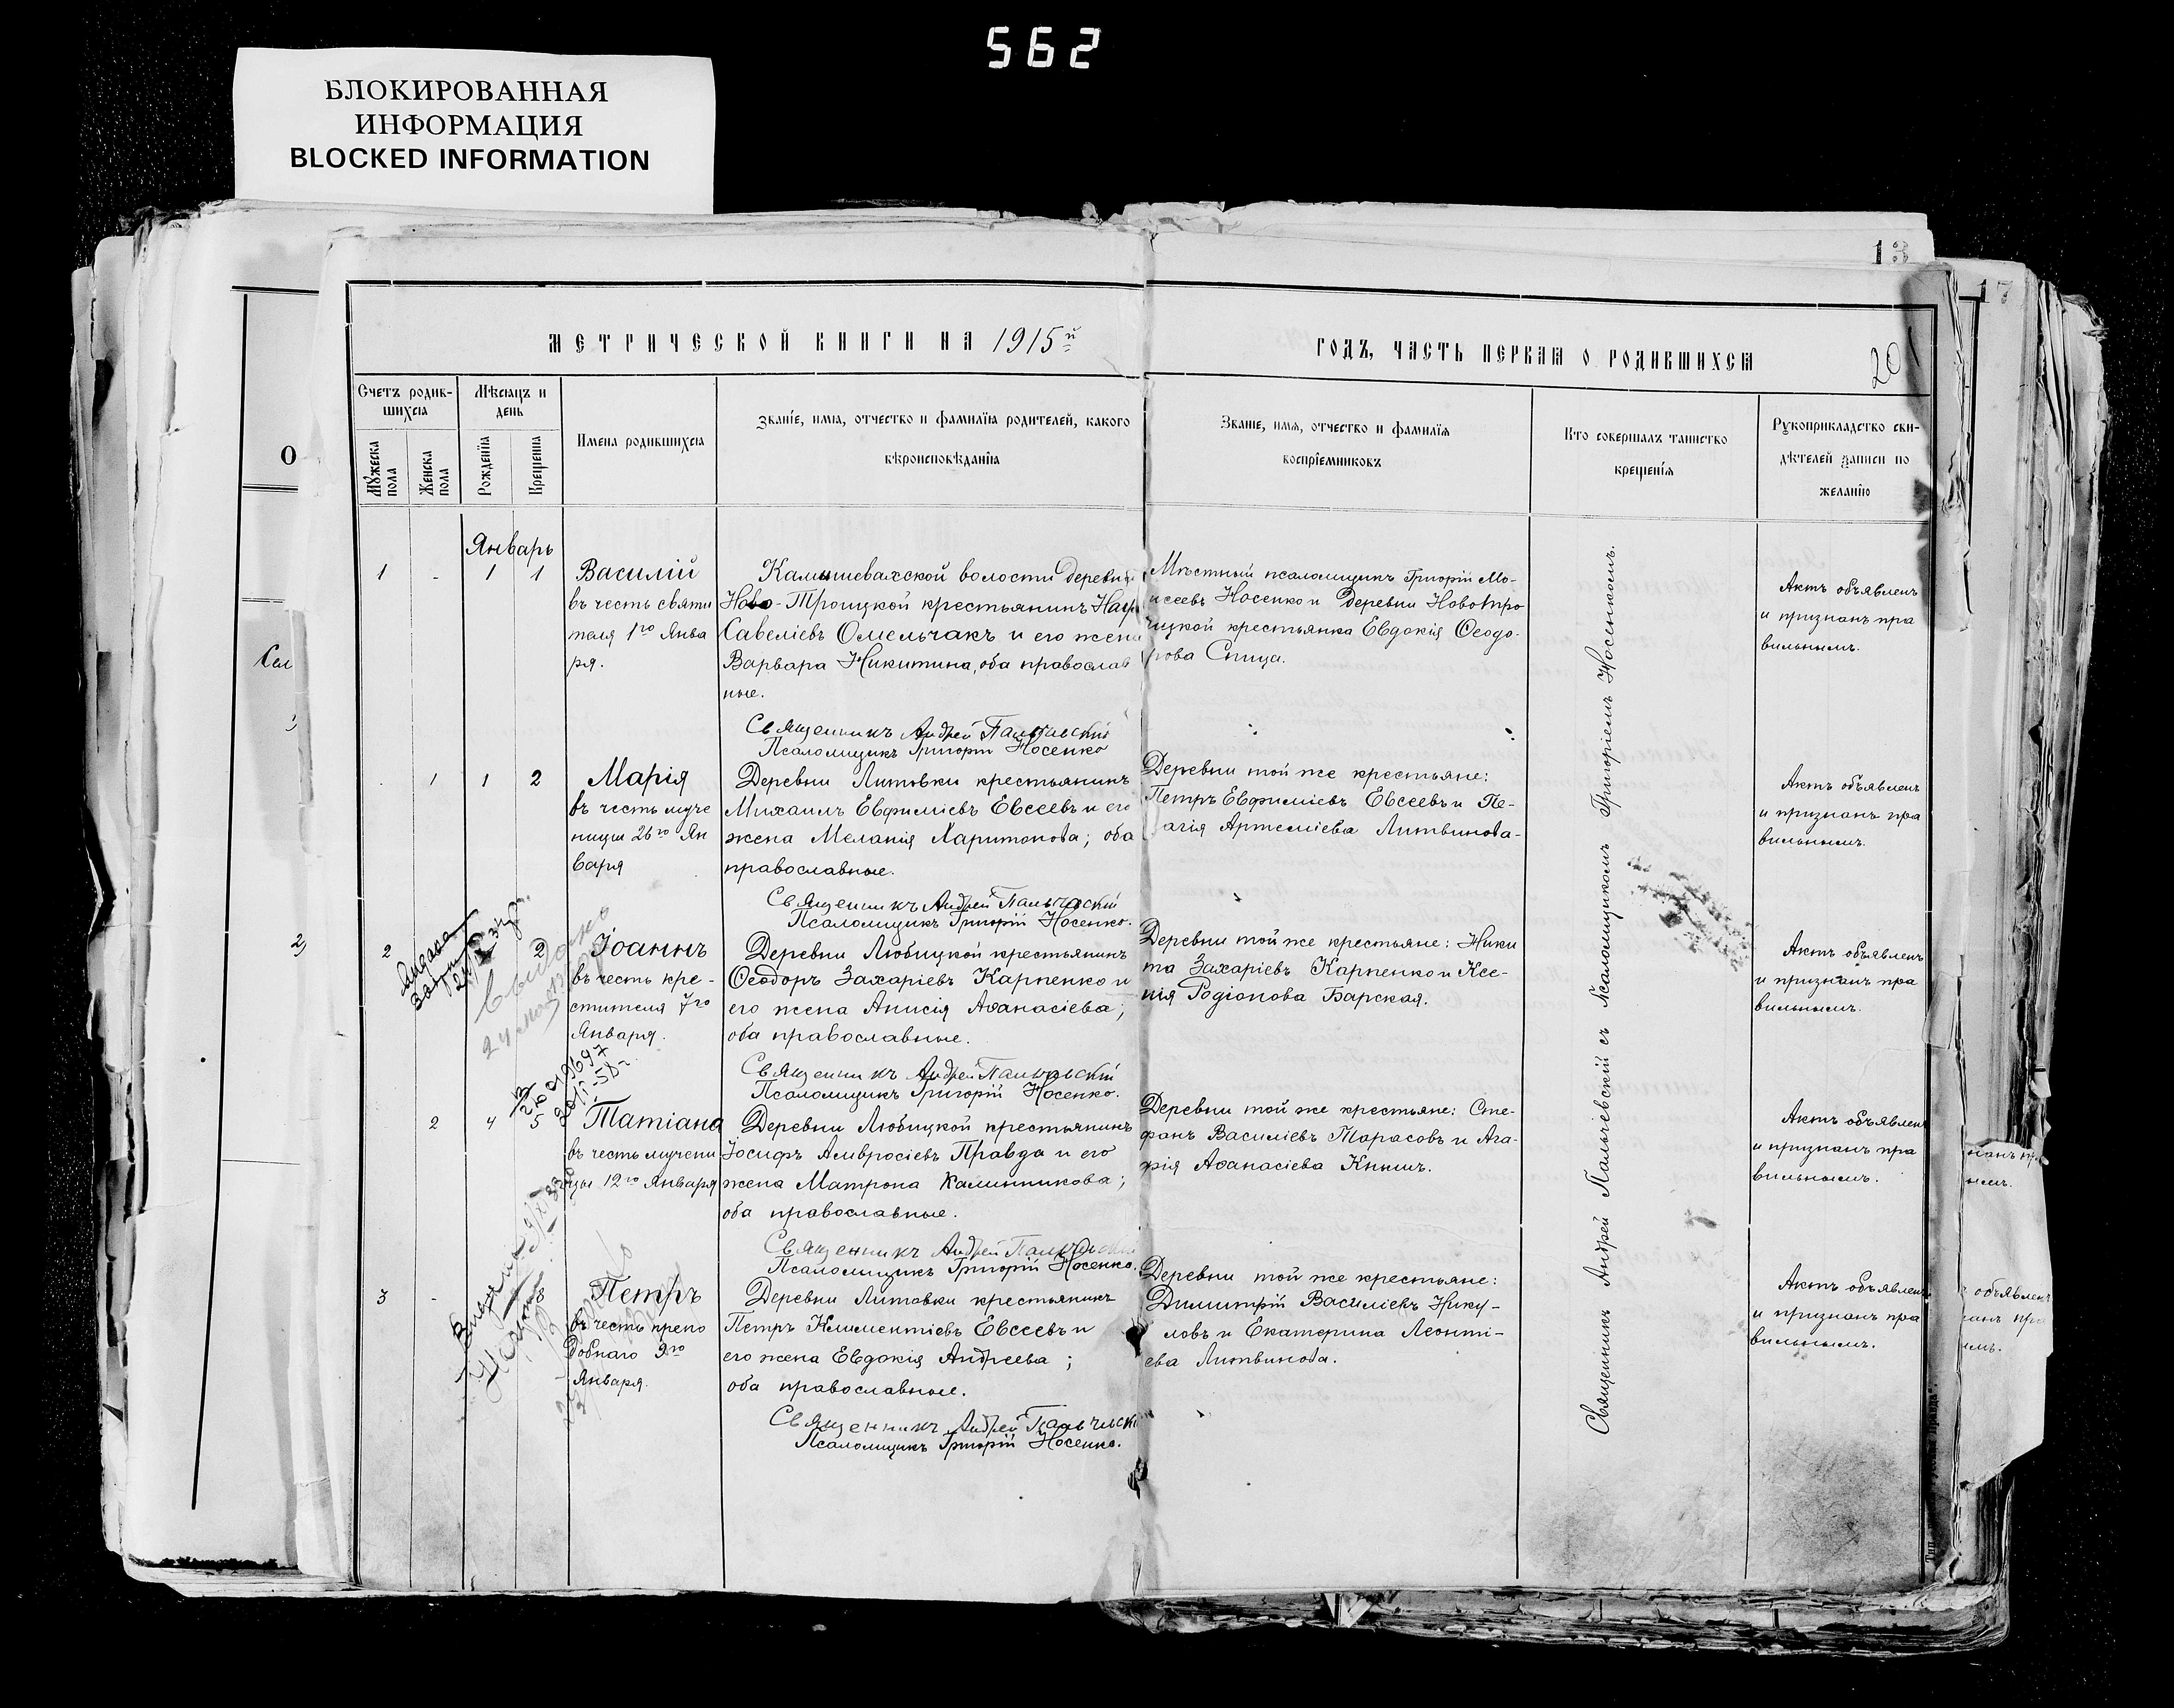 562
БЛОКИРОВАННАЯ
ИНФОРМАЦИЯ
BLOCKED INFORMATION
13
17
МЕТРИЧЕСКОЙ КНИГИ НА 1915й
ГОДЪ, ЧАСТЬ ПЕРВАЯ О РОДИВШИХСЯ
20
Счетъ родив-
шихся
Мѣсяцъ и
день
Мужеска
пола
Женска
пола
Рожденїя
Крещенїя
Имена родившихся
Званїе, имя, отчество и фамилїя родителей, какого
вѣроисповѣданїя
Званїе, имя, отчество и фамилїя
воспрїемниковъ
Кто совершалъ таинство
крещенїя
Рукоприкладство сви-
дѣтелей записи по
желанїю
О
Январь
1 - 1 1
Василій
въ честь святи
теля 1го Янва
ря.
Камышевахской волости деревни
Ново-Троицкой крестьянинъ
Савеліевъ Омельчакъ и его жена
Варвара Никитина, оба православ
ные.
Священникъ Андрей Пальчевскій
Псаломщикъ Григорій Носенко
Мѣстный псаломщикъ Григорій Мо-
исеевъ Носенко и деревни Новотро
ицкой крестьянка Евдокія Ѳеодо-
рова Спица.
Актъ объявленъ
и признанъ пра
вильнымъ.
1 1 2
Марія
въ честь муче
ницы 26го Ян
варя
Деревни Литовки крестьянинъ
Михаилъ Евфиміевъ Евсеевъ и его
жена Меланія Харитонова; оба
православные.
Священникъ Андрей Пальчевскій
Псаломщикъ Григорій Носенко.
Деревни той же крестьяне:
Петръ Евфиміевъ Евсеевъ и Пе-
лагія Артеміева Литвинова.
Актъ объявленъ
и признанъ пра
вильнымъ.
2 2
Іоаннъ
въ честь кре-
стителя 7го
Января.
Деревни Любицкой крестьянинъ
Ѳеодоръ Захаріевъ Карпенко и
его жена Анисія Аѳанасіева;
оба православные.
Священникъ Андрей Пальчевскій
Псаломщикъ Григорій Носенко.
Деревни той же крестьяне: Ники
та Захаріевъ Карпенко и Ксе-
нія Родіонова Барская.
Актъ объявленъ
и признанъ пра
вильнымъ.
2 4 5
Татіана
въ честь мучени
цы 12го Января
Деревни Любицкой крестьянинъ
Іосифъ Амвросіевъ Правда и его
жена Матрона Калинникова;
оба православные.
Священникъ Андрей Пальчевскій
Псаломщикъ Григорій Носенко.
Деревни той же крестьяне: Сте-
фанъ Василіевъ Тарасовъ и Ага-
фія Аѳанасіева Кнышъ.
Актъ объявленъ
и признанъ пра
вильнымъ.
3 - 8
Петръ
въ честь препо
добнаго 9го
Января.
Деревни Литовки крестьянинъ
Петръ Климентіевъ Евсеевъ и
его жена Евдокія Андреева;
оба православные.
Священникъ Андрей Пальчевскій
Псаломщикъ Григорій Носенко.
Деревни той же крестьяне:
Димитрій Василіевъ Нику-
ловъ и Екатерина Леонті-
ева Литвинова.
Актъ объявленъ
и признанъ пра
вильнымъ.
Священникъ Андрей Пальчевскій съ Псаломщикомъ Григоріемъ Носенкомъ.